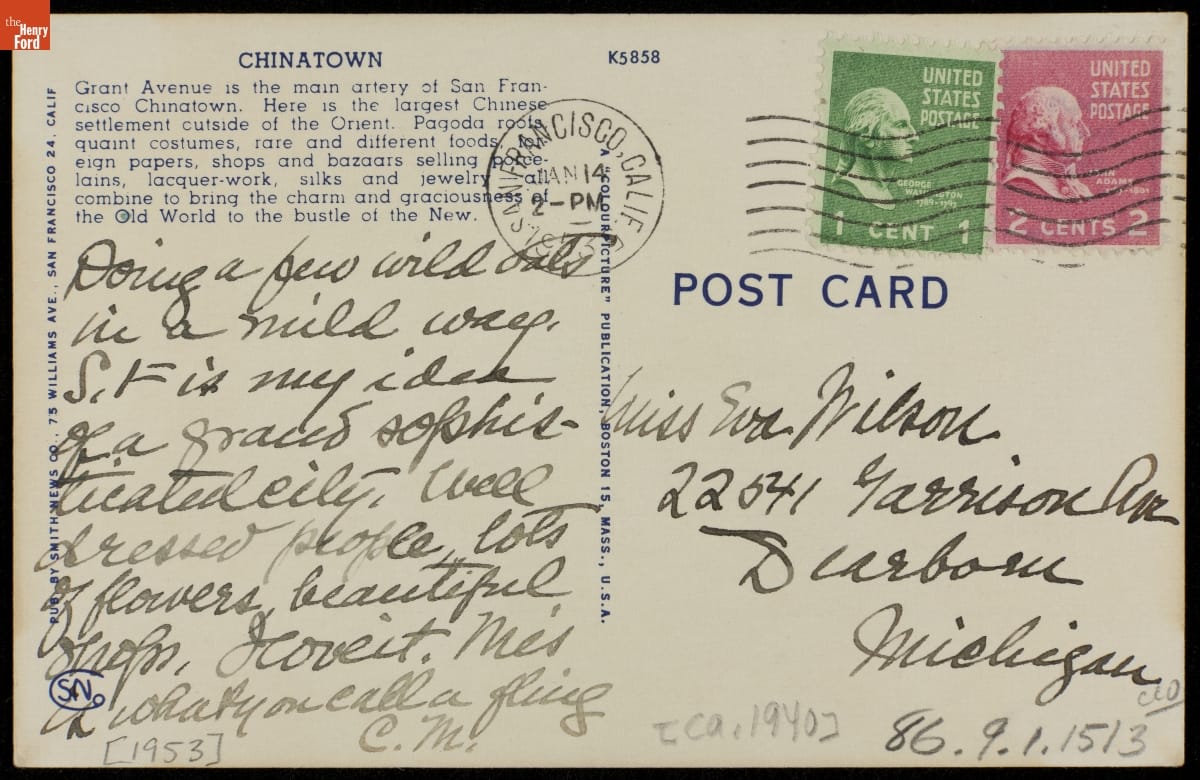 the
Henry
Ford
CHINATOWN
K5858
Grant Avenue is the main artery of San Fran-
cisco Chinatown. Here is the largest Chinese
settlement outside of the Orient. Pagoda roofs,
quaint costumes, rare and different foods,
eign papers, shops and bazaars selling porce-
lains, lacquer-work, silks and jewelry all
combine to bring the charm and graciousness of
the Old World to the bustle of the New.
SAN FRANCISCO, CALIF.
JAN 14
2-PM
1953
UNITED
STATES
POSTAGE
GEORGE
WASHINGTON
1789-1797
1 CENT 1
UNITED
STATES
POSTAGE
JOHN
ADAMS
1797-1801
2 CENTS 2
Doing a few wild oats
in a mild way.
S.F is my idea
of a grand sophis-
ticated city. Well
dressed people, lots
of flowers, beautiful
shops. I love it.
is what you call a fling
C.M.
[1953]
SN
Co
PUB. BY SMITH NEWS CO., 75 WILLIAMS AVE., SAN FRANCISCO 24, CALIF
A "COLOURPICTURE" PUBLICATION, BOSTON 15, MASS., U.S.A.
POST CARD
Miss Eva Wilson
22541 Garrison Ave
Dearborn
Michigan
[ca. 1940]
86.9.1.1513